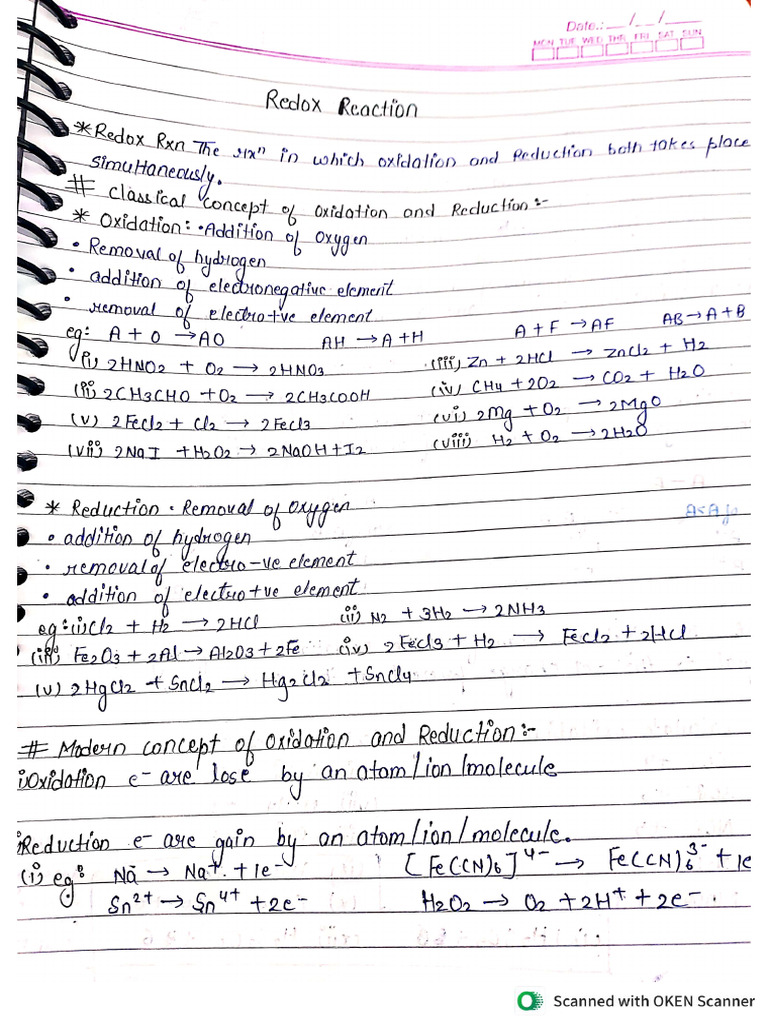 Date.: __/__/____
MON TUE WED THR FRI SAT SUN
Redox Reaction
* Redox Rxn The rxn in which oxidation and Reduction both takes place
simultaneously.
# Classical concept of oxidation and Reduction:-
* Oxidation: • Addition of oxygen
• Removal of hydrogen
• addition of electronegative element
• removal of electro+ve element
eg: A + O → AO AH → A + H A + F → AF AB → A + B
(i) 2HNO2 + O2 → 2HNO3 (iii) Zn + 2HCl → ZnCl2 + H2
(ii) 2CH3CHO + O2 → 2CH3COOH (iv) CH4 + 2O2 → CO2 + H2O
(v) 2FeCl2 + Cl2 → 2FeCl3 (vi) 2Mg + O2 → 2MgO
(vii) 2NaI + H2O2 → 2NaOH + I2 (viii) H2 + O2 → 2H2O
* Reduction • Removal of oxygen
• addition of hydrogen
• removal of electro-ve element
• addition of electro+ve element
eg: (i) Cl2 + H2 → 2HCl (ii) N2 + 3H2 → 2NH3
(iii) Fe2O3 + 2Al → Al2O3 + 2Fe (iv) 2FeCl3 + H2 → FeCl2 + 2HCl
(v) 2HgCl2 + SnCl2 → Hg2Cl2 + SnCl4
# Modern concept of oxidation and Reduction:-
i) Oxidation e- are lose by an atom/ion/molecule
Reduction e- are gain by an atom/ion/molecule.
(i) eg: Na → Na+ + 1e- [Fe(CN)6]4- → Fe(CN)6 3- + 1e
Sn2+ → Sn4+ + 2e- H2O2 → O2 + 2H+ + 2e-.
Scanned with OKEN Scanner